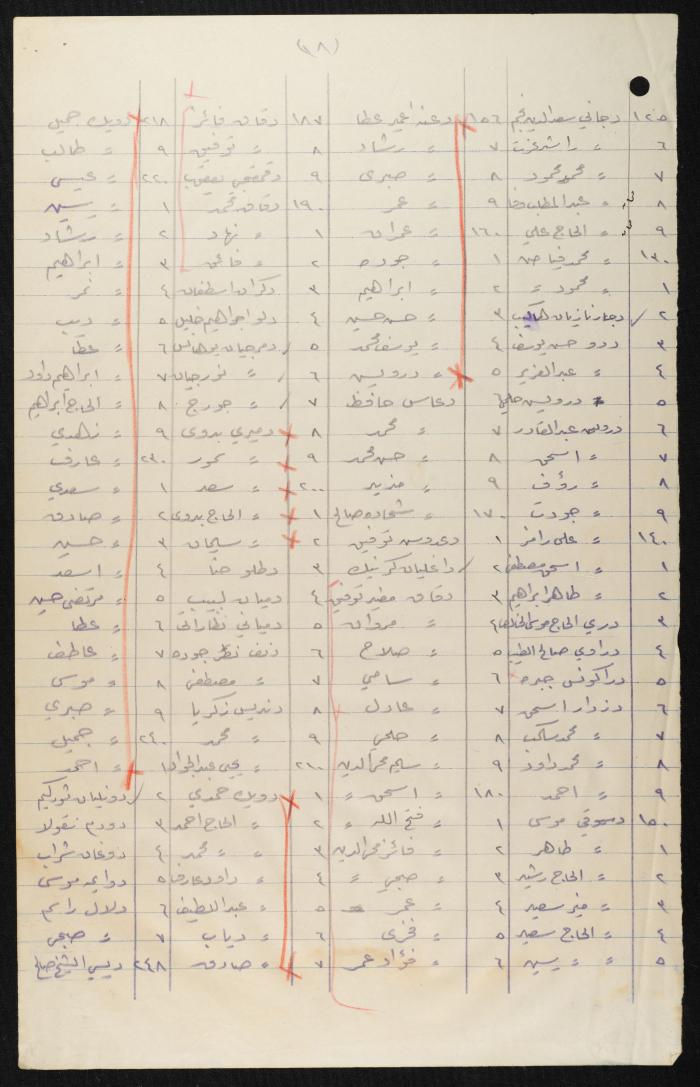 (١٨)
١٢٥ دجاني سعد الدين نجم
٦ 〃 راشد عزت
٧ 〃 محمد محمود
٨ 〃 عبد المطلب
٩ 〃 الحاج علي
١٣٠ 〃 محمد فياض
١ 〃 محمود 〃
٢ هاكيب
٣ ددو حسن يوسف
٤ 〃 عبد العزيز
٥ 〃 درويش حلمي
٦ درويش عبد القادر
٧ 〃 اسحق
٨ 〃 رؤف
٩ 〃 جودت
١٤٠ 〃 علي رامز
١ 〃 اسحق مصطفى
٢ 〃 طاهر ابراهيم
٣ دري الحاج موسى
٤ دراوي صالح الطيب
٥ دراكونس جبره
٦ دزدار اسحق
٧ 〃 محمد
٨ 〃 محمد داود
٩ 〃 احمد
١٥٠ دسوقي موسى
١ 〃 طاهر
٢ 〃 الحاج رشيد
٣ 〃 منير سعيد
٤ 〃 الحاج سعيد
٥ 〃 〃 يسين
١٥٦ دعنه عطا
٧ 〃 رشاد
٨ 〃 صبري
٩ 〃 عمر
١٦٠ 〃 عمران
١ 〃 جوده
٢ 〃 ابراهيم
٣ 〃 حسن حسين
٤ 〃 يوسف محمد
٥ 〃 درويش
٦ دعاس حافظ
٧ 〃 محمد
٨ 〃 حسن محمد
٩ 〃
١٧٠ 〃 شحاده صالح
١ دعدوس توفيق
٢ داغليان
٣ دقاق مطيع توفيق
٤ 〃 مروان
٥ 〃 صلاح
٦ 〃 سامي
٧ 〃 عادل
٨ 〃 حلمي
٩ 〃 سليم محي الدين
١٨٠ 〃 اسحق 〃
١ 〃 فتح الله 〃
٢ 〃 فائز محي الدين
٣ 〃 صبحي 〃
٤ 〃 عمر 〃
٥ 〃 فخري
٦ 〃 فؤاد عمر
١٨٧ دقاق فائز
٨ 〃 توفيق
٩ يعقوب
١٩٠ دقاق محمد
١ 〃 نهاد
٢ 〃 فائق
٣ دكران اسطفان
٤ دلو ابراهيم خليل
٥ دمرجيان
٦ 〃 نورجيان
٧ 〃 جورج
٨ دميري بدوي
٩ 〃
٢٠٠ 〃 سعد
١ 〃 الحاج بدوي
٢ 〃 سليمان
٣ دطلو حنا
٤ دميان لبيب
٥ دمياني
٦ دنف جوده
٧ 〃 مصطفى
٨ دنديس زكريا
٩ 〃 محمد
٢١٠ 〃 يحيى عبد الجواد
١ دويك حمدي
٢ 〃 الحاج احمد
٣ 〃 〃 محمد
٤ 〃 داود عارف
٥ 〃 عبد اللطيف
٦ 〃 دياب
٧ 〃 صادق
٢١٨ دويك جميل
٩ 〃 طالب
٢٢٠ 〃 عيسى
١ 〃 يسين
٢ 〃 رشاد
٣ 〃 ابراهيم
٤ 〃 نمر
٥ 〃 ديب
٦ 〃 عطا
٧ 〃 ابراهيم داود
٨ 〃 الحاج ابراهيم
٩ 〃 زهدي
٢٣٠ 〃 عارف
١ 〃 سعدي
٢ 〃 صادق
٣ 〃 حسين
٤ 〃 اسعد
٥ 〃 مرتضى حسين
٦ 〃 عطا
٧ 〃 عاطف
٨ 〃 موسى
٩ 〃 صبري
٢٤٠ 〃 جميل
١ 〃 احمد
٢ دونليان
٣ دودم نقولا
٤ دوغان شراب
٥ موسى
٦ دلال
٧ 〃 صبحي
٢٤٨ ديسي الشيخ صالح